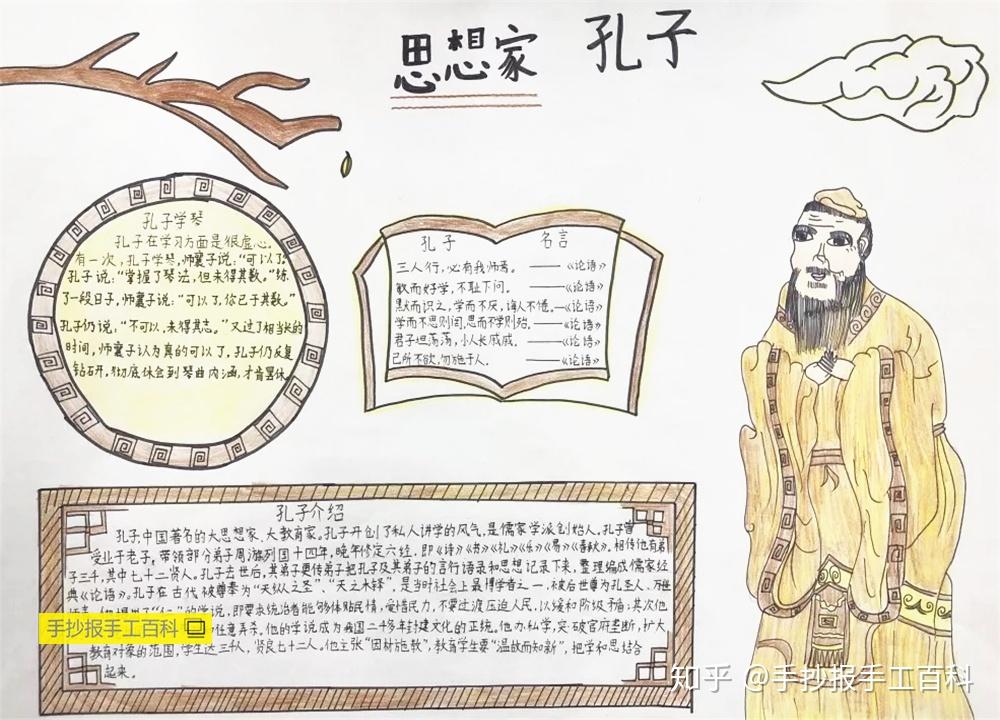 思想家 孔子
孔子学琴
孔子在学习方面是很虚心。
有一次，孔子学琴，师襄子说：“可以了。
孔子说：“掌握了琴法，但未得其数。”练
了一段日子，师襄子说：“可以了，你已于其数。”
孔子仍说，“不可以，未得其志。”又过了相当长的
时间，师襄子认为真的可以了，孔子仍反复
钻研，彻底体会到琴曲内涵，才肯罢休
孔子 名言
三人行，必有我师焉。——《论语》
敏而好学，不耻下问。——《论语》
默而识之，学而不厌，诲人不倦。——《论语》
学而不思则罔，思而不学则殆。——《论语》
君子坦荡荡，小人长戚戚。——《论语》
己所不欲，勿施于人。——《论语》
孔子介绍
孔子中国著名的大思想家、大教育家。孔子开创了私人讲学的风气，是儒家学派创始人。孔子曾
受业于老子，带领部分弟子周游列国十四年，晚年修定六经，即《诗》《书》《礼》《乐》《易》《春秋》。相传他有弟
子三千，其中七十二贤人。孔子去世后，其弟子更传弟子把孔子及其弟子的言行语录和思想记录下来，整理编成儒家经
典《论语》。孔子在古代被尊奉为“天纵之圣”、“天之木铎”，是当时社会上最博学者之一，被后世尊为孔圣人、万世
的学说，即要求统治者能够体贴民情，爱惜民力，不要过渡压迫人民，以缓和阶级矛盾；其次他
任意弄杀。他的学说成为我国二千多年封建文化的正统。他办私学，突破官府垄断，扩大
教育对象的范围，学生达三千人，贤良七十二人。他主张“因材施教”，教育学生要“温故而知新”，把学和思结合
起来。
手抄报手工百科
知乎 @手抄报手工百科